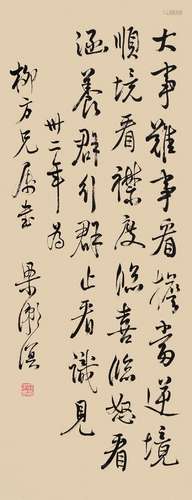 大事難事看擔當逆境
順境看襟度臨喜臨怒看
涵養群行群止看識見
卅二年為
柳方兄屬書 梁漱溟